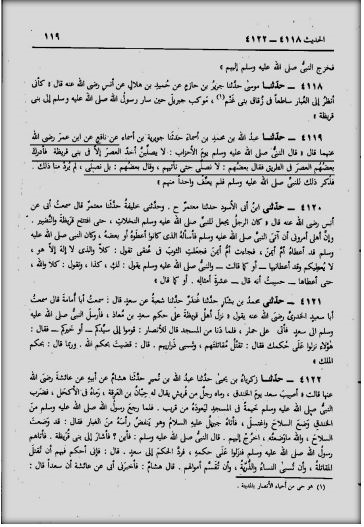 الحديث ٤١١٨ - ٤١٢٢ ١١٩
فخرج النبى صلى الله عليه وسلم إليهم »
٤١١٨ - حدثنا موسى حدثنا جرير بن حازم عن حميد بن هلال عن أنس رضى الله عنه قال « كأنى
أنظر إلى الغبار ساطعا فى زقاق بنى غنم(١) ، موكب جبريل حين سار رسول الله صلى الله عليه وسلم إلى بنى
قريظة »
٤١١٩ - حدثنا عبد الله بن محمد بن أسماء حدثنا جويرية بن أسماء عن نافع عن ابن عمر رضى الله
عنهما قال « قال النبى صلى الله عليه وسلم يوم الأحزاب : لا يصلين أحد العصر إلا فى بنى قريظة . فأدرك
بعضهم العصر فى الطريق فقال بعضهم : لا نصلى حتى نأتيهم ، وقال بعضهم : بل نصلى ، لم يرد منا ذلك .
فذكر ذلك للنبى صلى الله عليه وسلم فلم يعنف واحدا منهم »
٤١٢٠ - حدثنى ابن أبى الأسود حدثنا معتمر ح . وحدثنى خليفة حدثنا معتمر قال سمعت أبى عن
أنس رضى الله عنه قال « كان الرجل يجعل للنبى صلى الله عليه وسلم النخلات ، حتى افتتح قريظة والنضير .
وإن أهلى أمرونى أن آتى النبى صلى الله عليه وسلم فأسأله الذى كانوا أعطوه أو بعضه ، وكان النبى صلى الله عليه
وسلم قد أعطاه أم أيمن ، فجاءت أم أيمن فجعلت الثوب فى عنقى تقول : كلا والذى لا إله إلا هو ،
لا يعطيكهم وقد أعطانيها - أو كما قالت - والنبى صلى الله عليه وسلم يقول : لك كذا ، وتقول : كلا والله ،
حتى أعطاها - حسبت أنه قال - عشرة أمثاله . أو كما قال »
٤١٢١ - حدثنى محمد بن بشار حدثنا غندر حدثنا شعبة عن سعد قال : سمعت أبا أمامة قال سمعت
أبا سعيد الخدرى رضى الله عنه يقول « نزل أهل قريظة على حكم سعد بن معاذ ، فأرسل النبى صلى الله عليه
وسلم إلى سعد فأتى على حمار ، فلما دنا من المسجد قال للأنصار : قوموا إلى سيدكم - أو خيركم - فقال :
هؤلاء نزلوا على حكمك فقال : تقتل مقاتلتهم ، وتسبى ذراريهم . قال : قضيت بحكم الله . وربما قال : بحكم
الملك »
٤١٢٢ - حدثنا زكرياء بن يحيى حدثنا عبد الله بن نمير حدثنا هشام عن أبيه عن عائشة رضى الله
عنها قالت « أصيب سعد يوم الخندق ، رماه رجل من قريش يقال له حبان بن العرقة ، رماه فى الأكحل ، فضرب
النبى صلى الله عليه وسلم خيمة فى المسجد ليعوده من قريب . فلما رجع رسول الله صلى الله عليه وسلم من
الخندق وضع السلاح واغتسل ، فأتاه جبريل عليه السلام وهو ينفض رأسه من الغبار فقال : قد وضعت
السلاح ، والله ما وضعته ، اخرج إليهم . قال النبى صلى الله عليه وسلم : فأين ؟ فأشار إلى بنى قريظة . فأتاهم
رسول الله صلى الله عليه وسلم فنزلوا على حكمه ، فرد الحكم إلى سعد . قال : فإنى أحكم فيهم أن تقتل
المقاتلة ، وأن تسبى النساء والذرية ، وأن تقسم أموالهم . قال هشام : فأخبرنى أبى عن عائشة أن سعدا قال :
(١) هو حى من أحياء الأنصار بالمدينة .